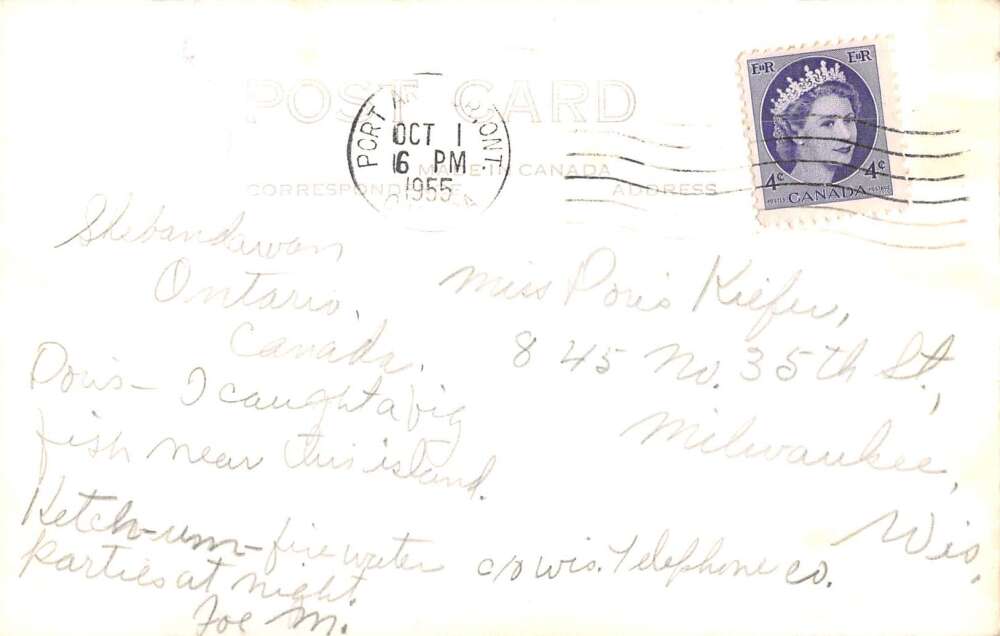 POST CARD
PORT ONT.
OCT 1
6 PM
1955
MADE IN CANADA
CORRESPONDENCE
ADDRESS
EIIR EIIR
4¢ 4¢
POSTES CANADA POSTAGE
Shebandawan
Ontario,
Canada.
Doris- I caught a big
fish near this island.
Ketch-um- fire water
parties at night.
Joe M.
Miss Doris Kiefer,
845 No. 35th St.,
Milwaukee,
Wis.
c/o Wis. Telephone Co.